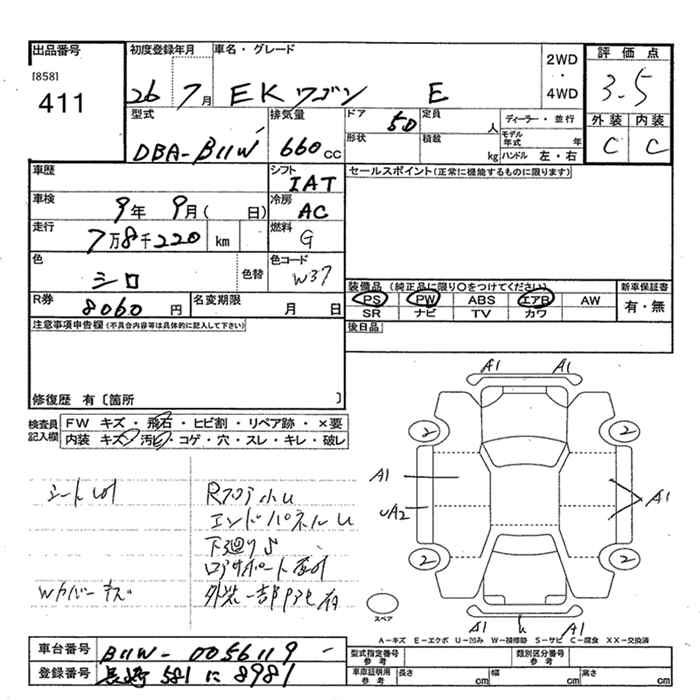 出品番号
[858]
411
初度登録年月
26 7月
車名・グレード
EK ワゴン E
2WD
・
4WD
評価点
3.5
外装 内装
C C
型式
DBA-B11W
排気量
660cc
ドア
5D
形状
定員
人
積載
kg
ディーラー・並行
モデル年式 年
ハンドル 左・右
車歴
シフト
IAT
セールスポイント(正常に機能するものに限ります)
車検
9年 9月( 日)
冷房
AC
走行
7万8千220 km
燃料
G
色
シロ
色替
色コード
W37
装備品 (純正品に限り○をつけてください)
PS PW ABS エアB AW
SR ナビ TV カワ
新車保証書
有・無
R券
8060 円
名変期限
月 日
後日品
注意事項申告欄(不具合内容等は具体的に記入して下さい)
修復歴 有〔箇所 〕
検査員記入欄
FW キズ・飛石・ヒビ割・リペア跡・×要
内装 キズ・汚ヒ・コゲ・穴・スレ・キレ・破レ
A1 A1
2 2
A1
A1
UA2
2 2
A1 U A1
スペア
エンドパネルU
下廻りS
Wカバーキズ
A-キズ E-エクボ U-凹み W-補修跡 S-サビ C-腐食 XX-交換済
車台番号
B11W-0056119
登録番号
長崎 581 に 8981
型式指定番号
参考
類別区分番号
参考
車庫証明用
参考
長さ cm
幅 cm
高さ cm